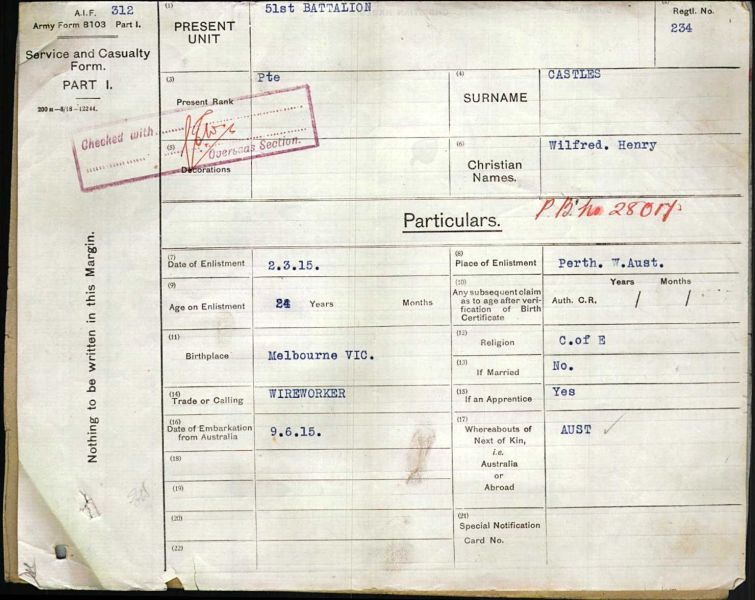 A.I.F. 312
Army Form B103 Part I.
Service and Casualty
Form.
PART I.
200 M—8/18—12244.
Nothing to be written in this Margin.
(1)
PRESENT
UNIT
51st BATTALION
Regtl. No.
234
(3)
Present Rank
Pte
(4)
SURNAME
CASTLES
Checked with
Overseas Section.
(5)
Decorations
(6)
Christian
Names.
Wilfred. Henry
Particulars.
P.B. No 28017
(7)
Date of Enlistment
2.3.15.
(8)
Place of Enlistment
Perth. W.Aust.
(9)
Age on Enlistment
24 Years Months
(10)
Any subsequent claim
as to age after veri-
fication of Birth
Certificate
Years Months
Auth. C.R. / /
(11)
Birthplace
Melbourne VIC.
(12)
Religion
C.of E
(13)
If Married
No.
(14)
Trade or Calling
WIREWORKER
(15)
If an Apprentice
Yes
(16)
Date of Embarkation
from Australia
9.6.15.
(17)
Whereabouts of
Next of Kin,
i.e.
Australia
or
Abroad
AUST
(18)
(19)
(20)
(21)
Special Notification
Card No.
(22)